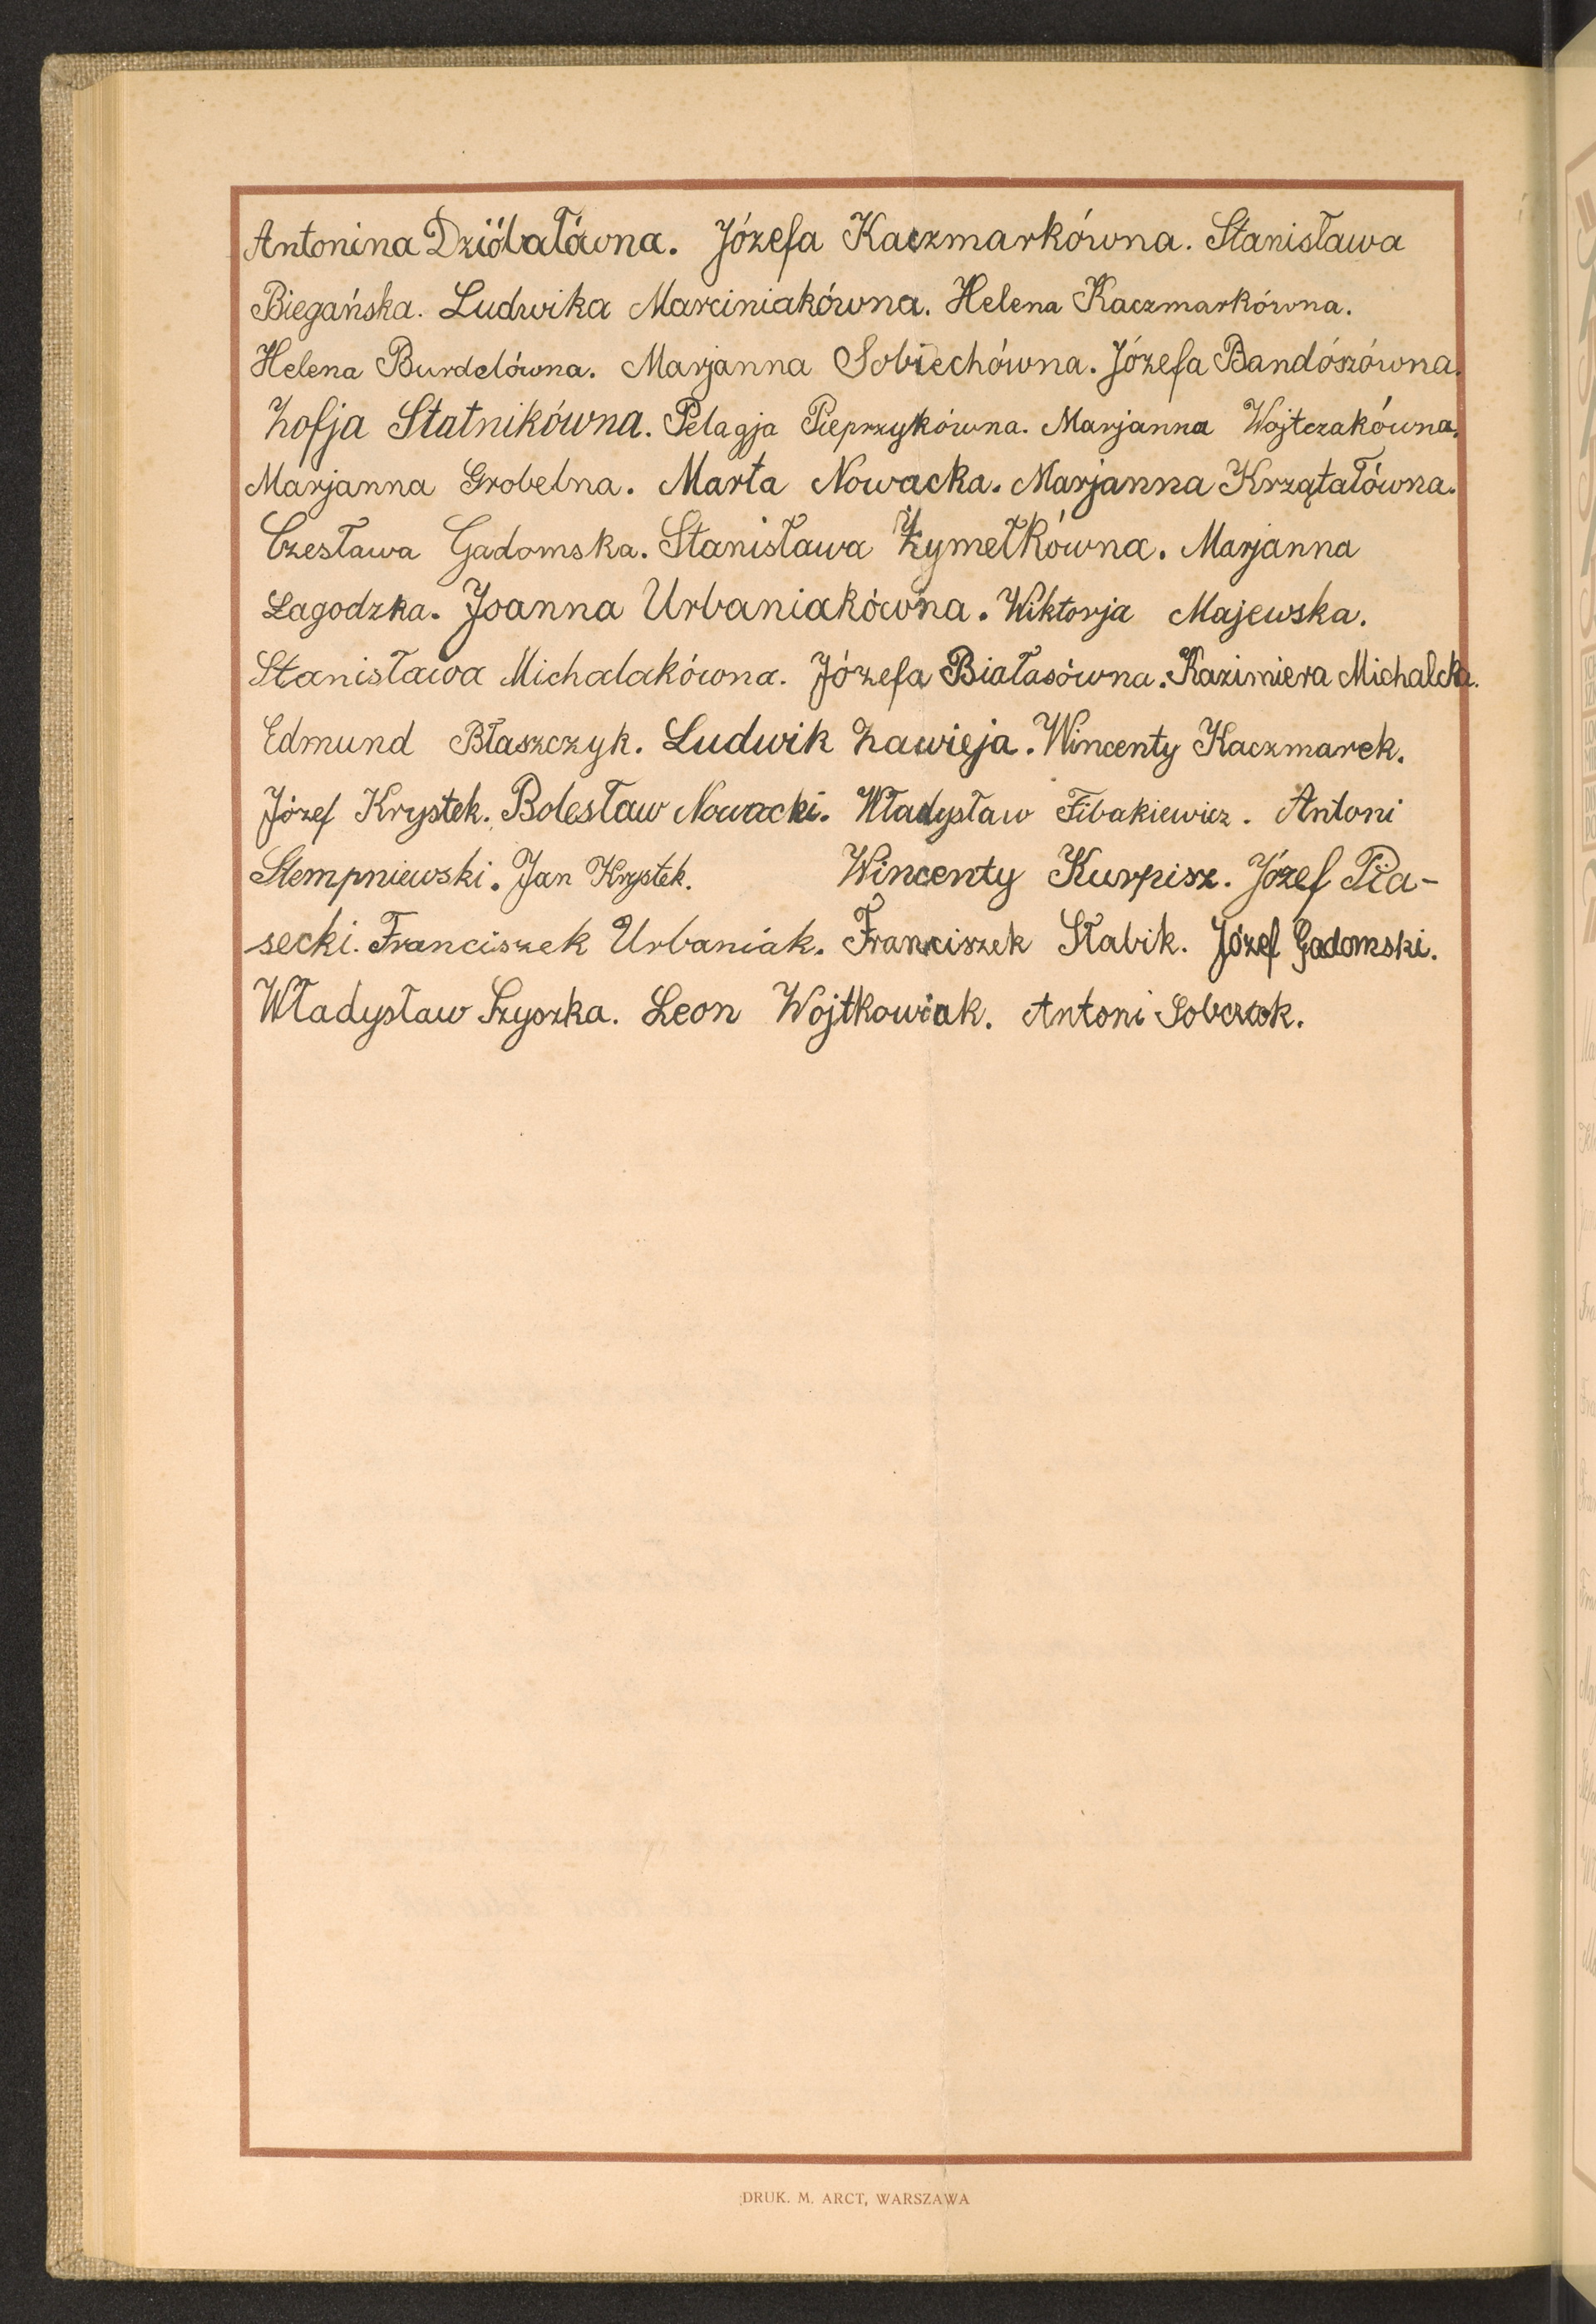 Antonina Dzióbałówna. Józefa Kaczmarkówna. Stanisława
Biegańska. Ludwika Marciniakówna. Helena Kaczmarkówna.
Helena Burdelówna. Marjanna Sobiechówna. Józefa Bandószówna.
Zofja Statnikówna. Pelagja Pieprzykówna. Marjanna Wojtczakówna.
Marjanna Grobelna. Marta Nowacka. Marjanna Krzątałówna.
Czesława Gadomska. Stanisława Żymełkówna. Marjanna
Łagodzka. Joanna Urbaniakówna. Wiktorja Majewska.
Stanisława Michalakówna. Józefa Białasówna. Kazimiera Michalcka.
Edmund Błaszczyk. Ludwik Zawieja. Wincenty Kaczmarek.
Józef Krystek. Bolesław Nowacki. Władysław Fibakiewicz. Antoni
Stempniewski. Jan Krystek. Wincenty Kurpisz. Józef Pia-
secki. Franciszek Urbaniak. Franciszek Stabik. Józef Gadomski.
Władysław Szyszka. Leon Wojtkowiak. Antoni Sobczak.
DRUK. M. ARCT, WARSZAWA